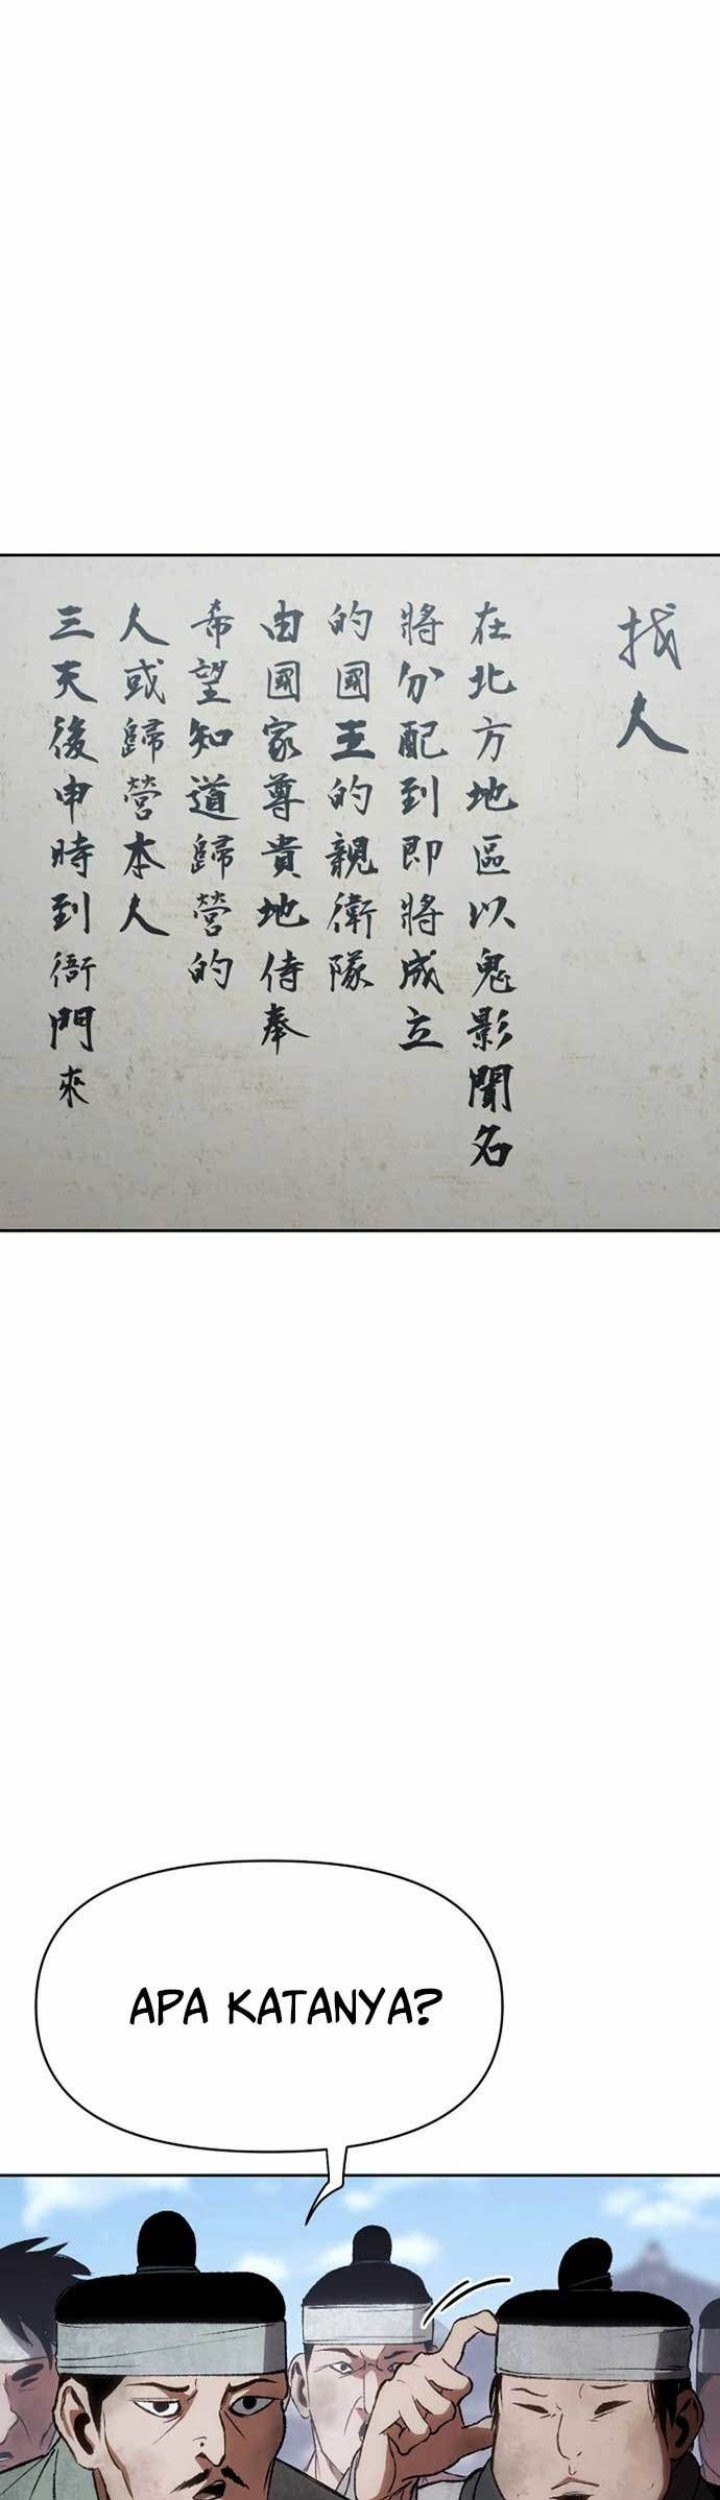 找人
在北方地區以鬼影聞名
將分配到即將成立
的國王的親衛隊
由國家尊貴地侍奉
希望知道歸營的
人或歸營本人
三天後申時到衙門來
APA KATANYA?